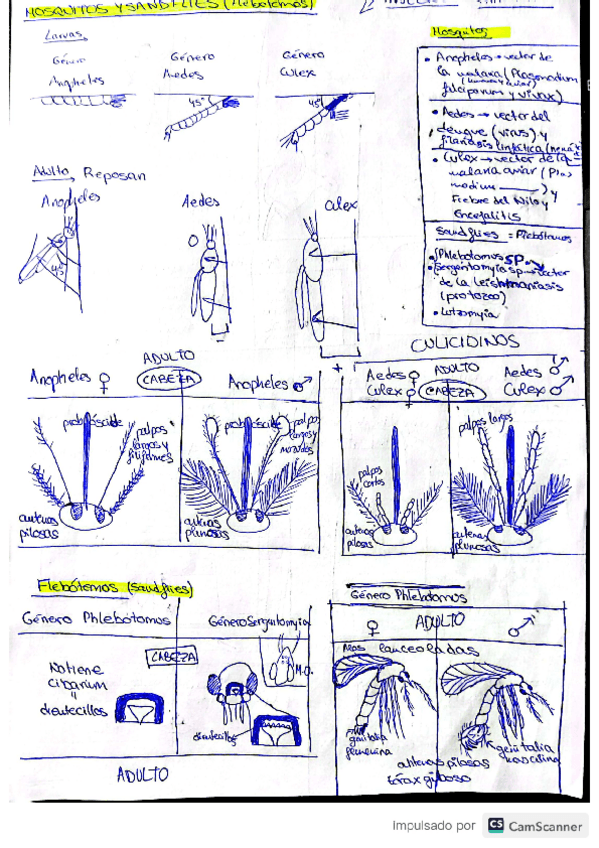 MOSQUITOS Y SANDFLIES (Flebótomos)
Larvas
Género
Anopheles
Género
Aedes
Género
Culex
45°
45°
Adulto, Reposan
Anopheles
Aedes
Culex
45°
Mosquitos
• Anopheles → vector de
la malaria (Plasmodium
falciparum y vivax)
• Aedes → vector del
dengue (virus) y
filariasis linfática
• Culex → vector de la
malaria aviar (Plas
modium ______) y
Fiebre del Nilo y
Encefalitis
Sandflies = Flebótomos
• Phlebotomus SP.
• Sergentomyia sp → vector
de la leishmaniasis
(protozoo)
• Lutzomyia
ADULTO
Anopheles ♀
CABEZA
Anopheles ♂
probóscide
palpos
largos y
filiformes
antenas
pilosas
probóscide
palpos
largos y
antenas
plumosas
CULICIDINOS
Aedes ♀
Culex ♀
ADULTO
CABEZA
Aedes ♂
Culex ♂
palpos
cortos
antenas
pilosas
palpos largos
antenas
plumosas
Flebótomos (sandflies)
Género Phlebótomos
Género Sergentomyia
CABEZA
No tiene
cibarium
=
dientecillos
M.O.
dientecillos
ADULTO
Género Phlebotomos
♀
ADULTO
♂
Alas lanceoladas
genitalia
femenina
genitalia
masculina
antenas pilosas
tórax giboso
Impulsado por CS CamScanner